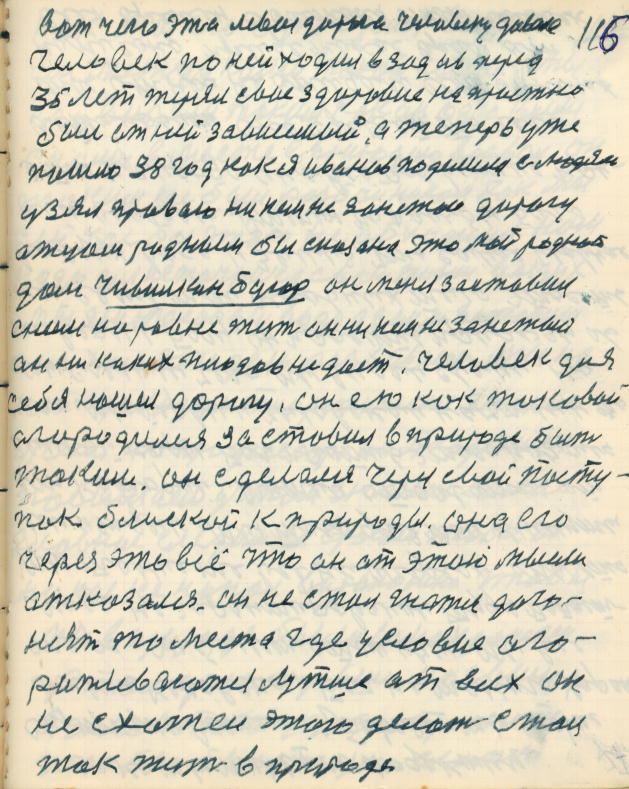 вот чего эта левая дорога человеку давала
116
человек по ней ходил взад ав перед
35 лет терял свае здоровие напрастно
был от ней зависемый, а теперь уже
пошло 38 год как я иванов поделился с людями
узял праваю ни кем не занетаю дорогу
родным был сказана это мой родной
дом Чивилкин бугор он меня заставил
с ним наровне жит он ни кем не занетый
он ни каких плодов не дает. человек для
себя нашел дорогу. он ею как таковой
огородился заставил в природе быть
таким. он сделался через свой посту-
пок блиской к природы. она его
через это всё что он от этою мысли
отказался. он не стал гнатся дого-
нят то места где условие ого-
раживаются лутше от всех он
не схотел этого делат стал
так жит в природе